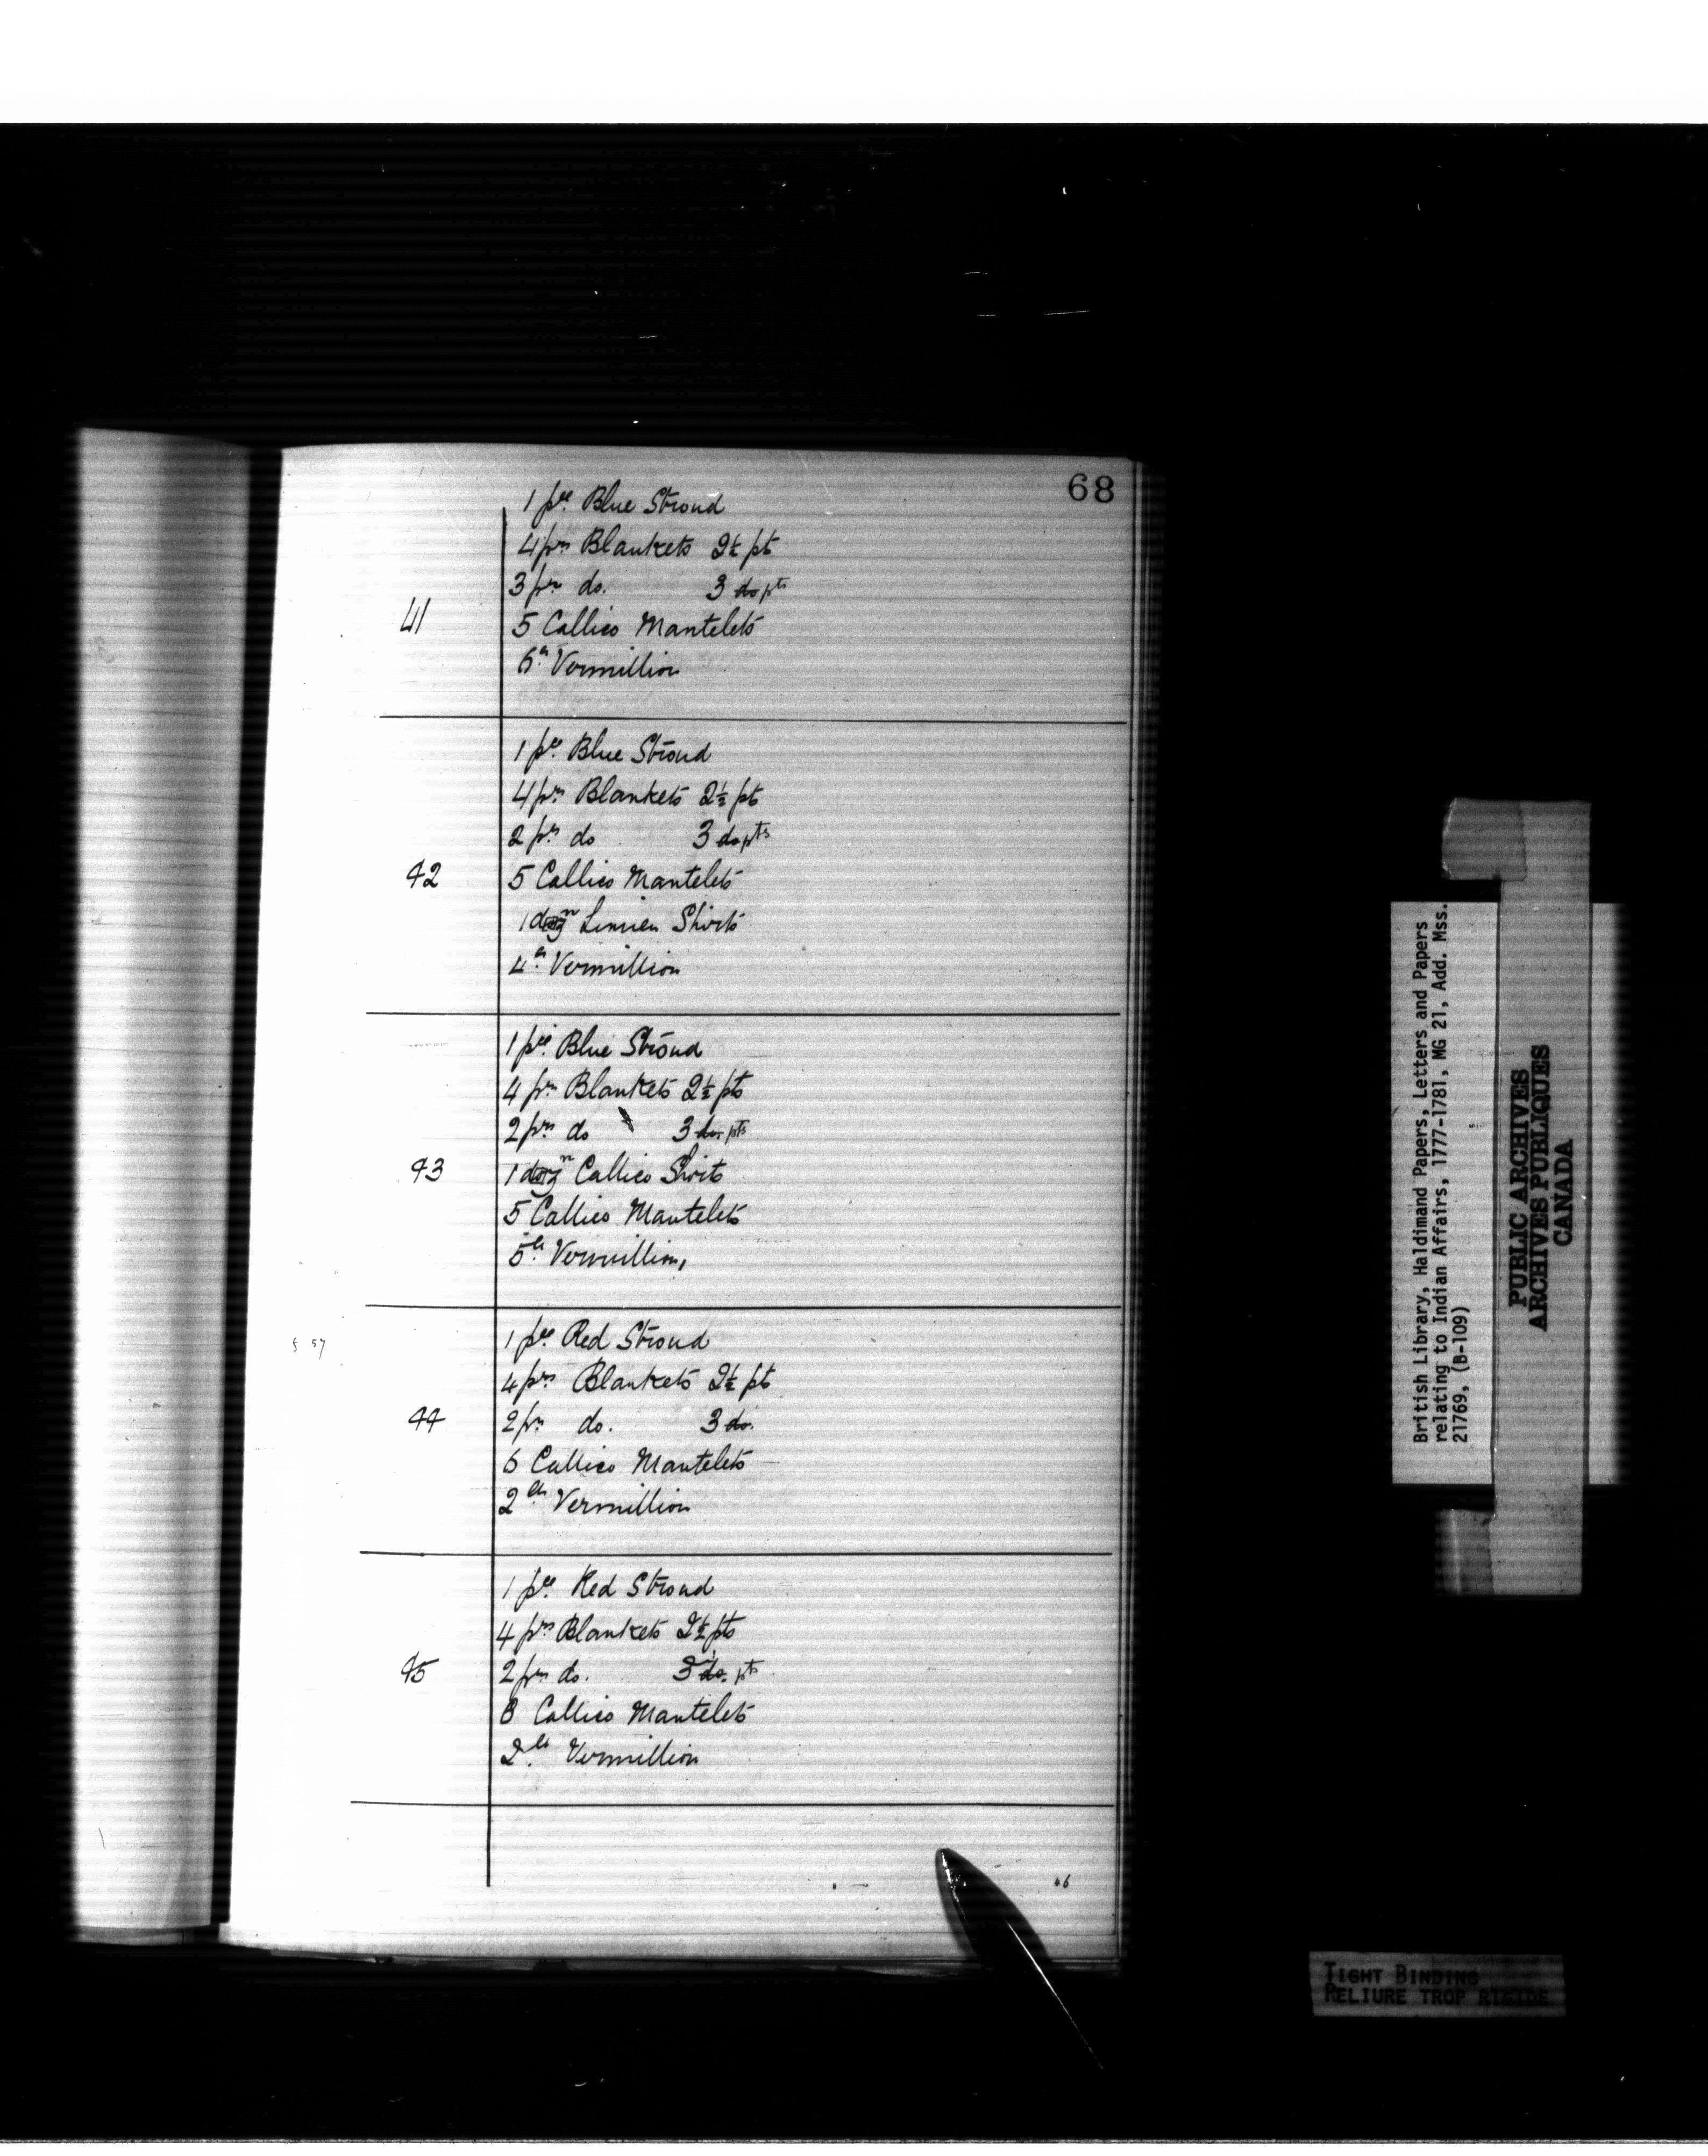 68
1 pce. Blue Stroud
4 prs Blankets 2½ pt
3 prs do. 3 do pts
41
5 Callico Mantelets
6 lb. Vermillion
1 pce. Blue Stroud
4 prs Blankets 2½ pt
2 prs do 3 do pts
42
5 Callico Mantelets
1 dozn Linnen Shirts
4 lb. Vermillion
1 pce. Blue Stroud
4 prs Blankets 2½ pts
2 prs do 3 do. pts
43
1 dozn Callico Shirts
5 Callico Mantelets
5 lb. Vermillion,
f 57
1 pce. Red Stroud
4 prs Blankets 2½ pt
44
2 prs do. 3 do.
6 Callico Mantelets
2 lb. Vermillion
1 pce. Red Stroud
4 prs Blankets 2½ pts
45
2 prs do. 3 do. pts
8 Callico Mantelets
2 lb. Vermillion
46
British Library, Haldimand Papers, Letters and Papers
relating to Indian Affairs, 1777-1781, MG 21, Add. Mss.
21769, (B-109)
PUBLIC ARCHIVES
ARCHIVES PUBLIQUES
CANADA
TIGHT BINDING
RELIURE TROP RIGIDE